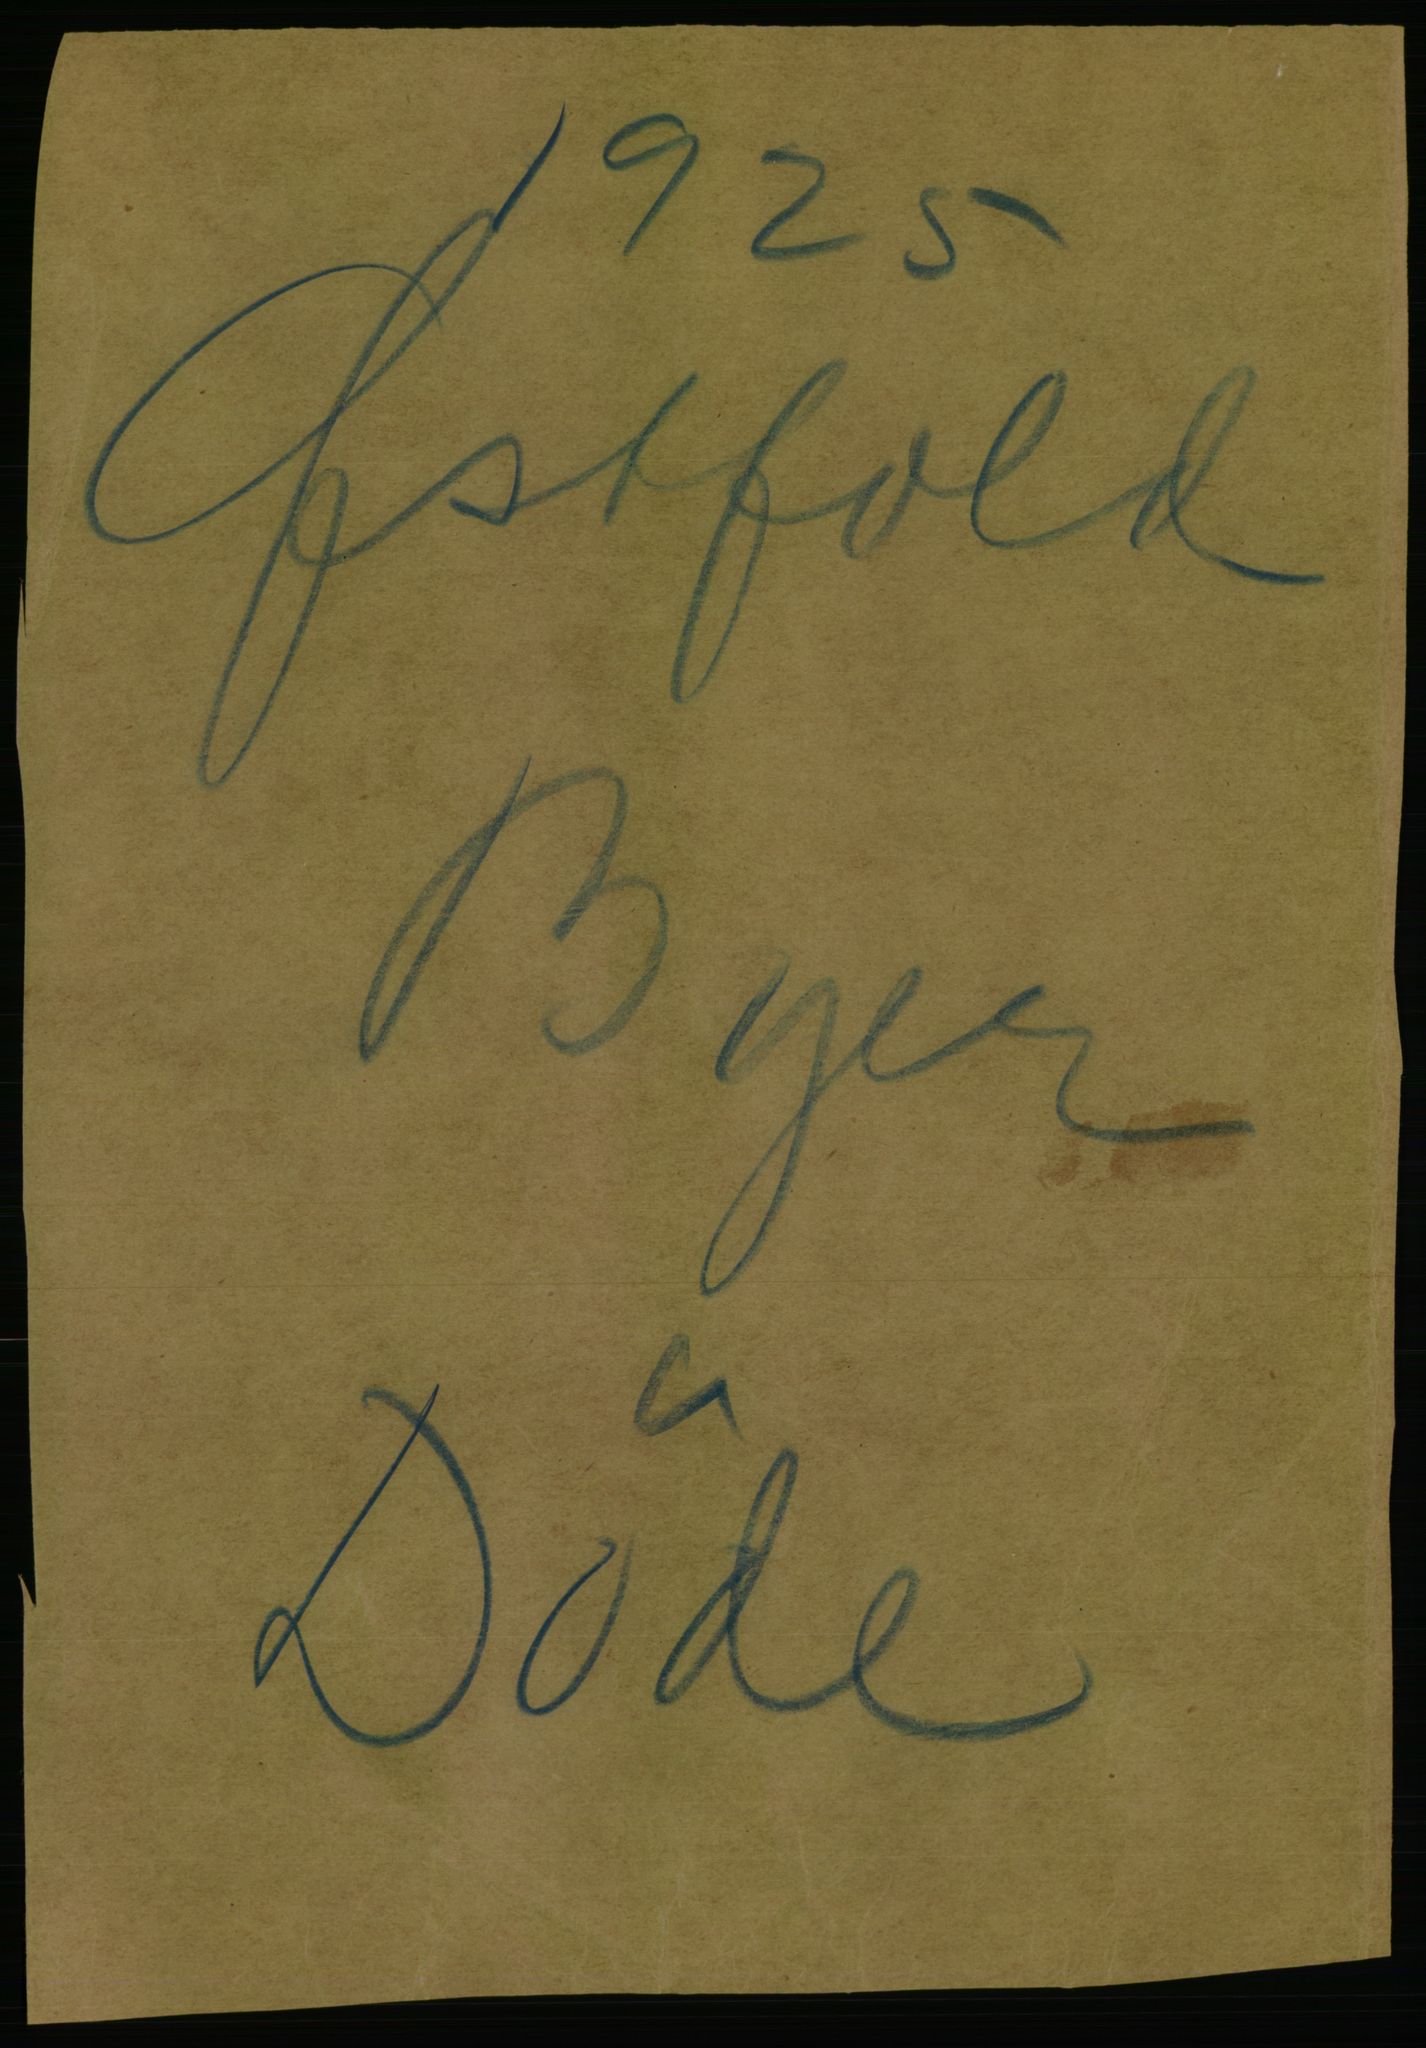 1925
Østfold
Byer
Døde